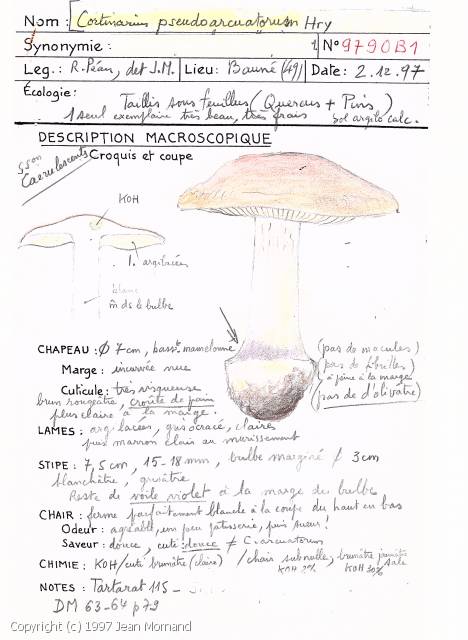 Nom : Cortinarius pseudoarcuatorum Hry
Synonymie : 1 N° 9790B1
Leg. : R. Péan, det J.M. Lieu : Bauné (49) Date : 2.12.97
Écologie :
Taillis sous feuilles (Quercus + Pins)
1 seul exemplaire très beau, très frais sol argilo calc.
DESCRIPTION MACROSCOPIQUE
Croquis et coupe
s/son
Caerulescentes
KOH
l. argilacées
blanc
m̂ ds le bulbe
CHAPEAU : Ø 7 cm, basst mamelonné
(pas de macules)
Marge : incurvée nue
(pas de fibrilles
à peine à la marge)
Cuticule : très visqueuse
(pas d'olivâtre)
brun rougeâtre, croûte de pain
plus claire à la marge.
LAMES : argilacées, gris ocracé, claires
puis marron clair au murissement
STIPE : 7,5 cm, 15-18 mm, bulbe marginé / 3 cm
blanchâtre, grisâtre
Reste de voile violet à la marge du bulbe
CHAIR : ferme parfaitement blanche à la coupe du haut en bas
Odeur : agréable, un peu pâtisserie, puis
Saveur : douce, cuti : douce ≠ C. arcuatorum
CHIMIE : KOH/cuti brunâtre (claire) / chair subnulle, brunâtre sale
KOH 3% KOH 30%
NOTES : Tartarat 115-
DM 63-64 p79
Copyright (c) 1997 Jean Mornand